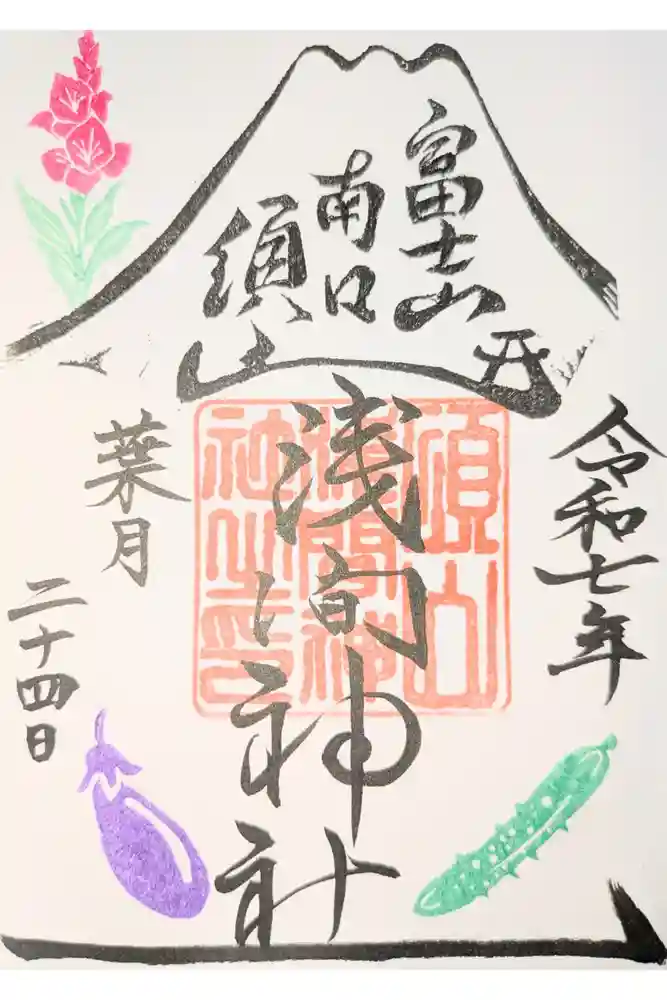 富士山
南口
須山
令和七年
浅間神社
葉月
二十四日
須山
淺間神
社之印